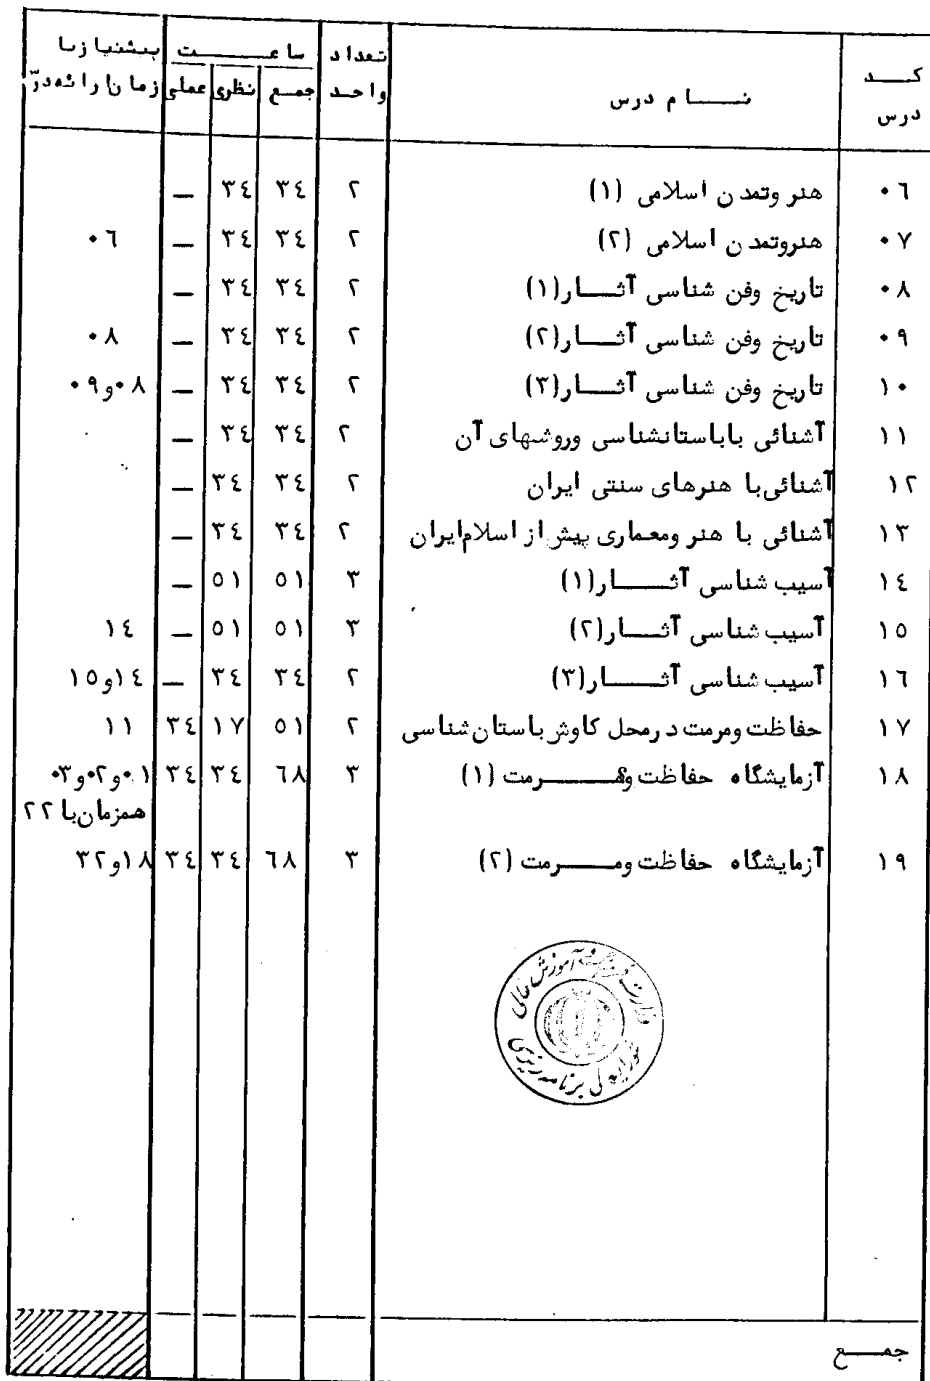 کد درس | نام درس | تعداد واحد | ساعت | پیشنیاز یا زمان ارائه درس
جمع | نظری | عملی
۰۶ | هنر وتمدن اسلامی (۱) | ۲ | ۳٤ | ۳٤ | —
۰۷ | هنروتمدن اسلامی (۲) | ۲ | ۳٤ | ۳٤ | — | ۰۶
۰۸ | تاریخ وفن شناسی آثار(۱) | ۲ | ۳٤ | ۳٤ | —
۰۹ | تاریخ وفن شناسی آثار(۲) | ۲ | ۳٤ | ۳٤ | — | ۰۸
۱۰ | تاریخ وفن شناسی آثار(۳) | ۲ | ۳٤ | ۳٤ | — | ۰۸و۰۹
۱۱ | آشنائی باباستانشناسی وروشهای آن | ۲ | ۳٤ | ۳٤ | —
۱۲ | آشنائی با هنرهای سنتی ایران | ۲ | ۳٤ | ۳٤ | —
۱۳ | آشنائی با هنر ومعماری پیش از اسلام ایران | ۲ | ۳٤ | ۳٤ | —
۱٤ | آسیب شناسی آثار(۱) | ۳ | ۵۱ | ۵۱ | —
۱۵ | آسیب شناسی آثار(۲) | ۳ | ۵۱ | ۵۱ | — | ۱٤
۱۶ | آسیب شناسی آثار(۳) | ۲ | ۳٤ | ۳٤ | — | ۱٤و۱۵
۱۷ | حفاظت ومرمت درمحل کاوش باستان شناسی | ۲ | ۵۱ | ۱۷ | ۳٤ | ۱۱
۱۸ | آزمایشگاه حفاظت ومرمت (۱) | ۳ | ۶۸ | ۳٤ | ۳٤ | ۰۱و۰۲و۰۳
همزمان با ۲۲
۱۹ | آزمایشگاه حفاظت ومرمت (۲) | ۳ | ۶۸ | ۳٤ | ۳٤ | ۱۸و۳۲
وزارت فرهنگ و آموزش عالی
شورایعالی برنامه ریزی
جمع